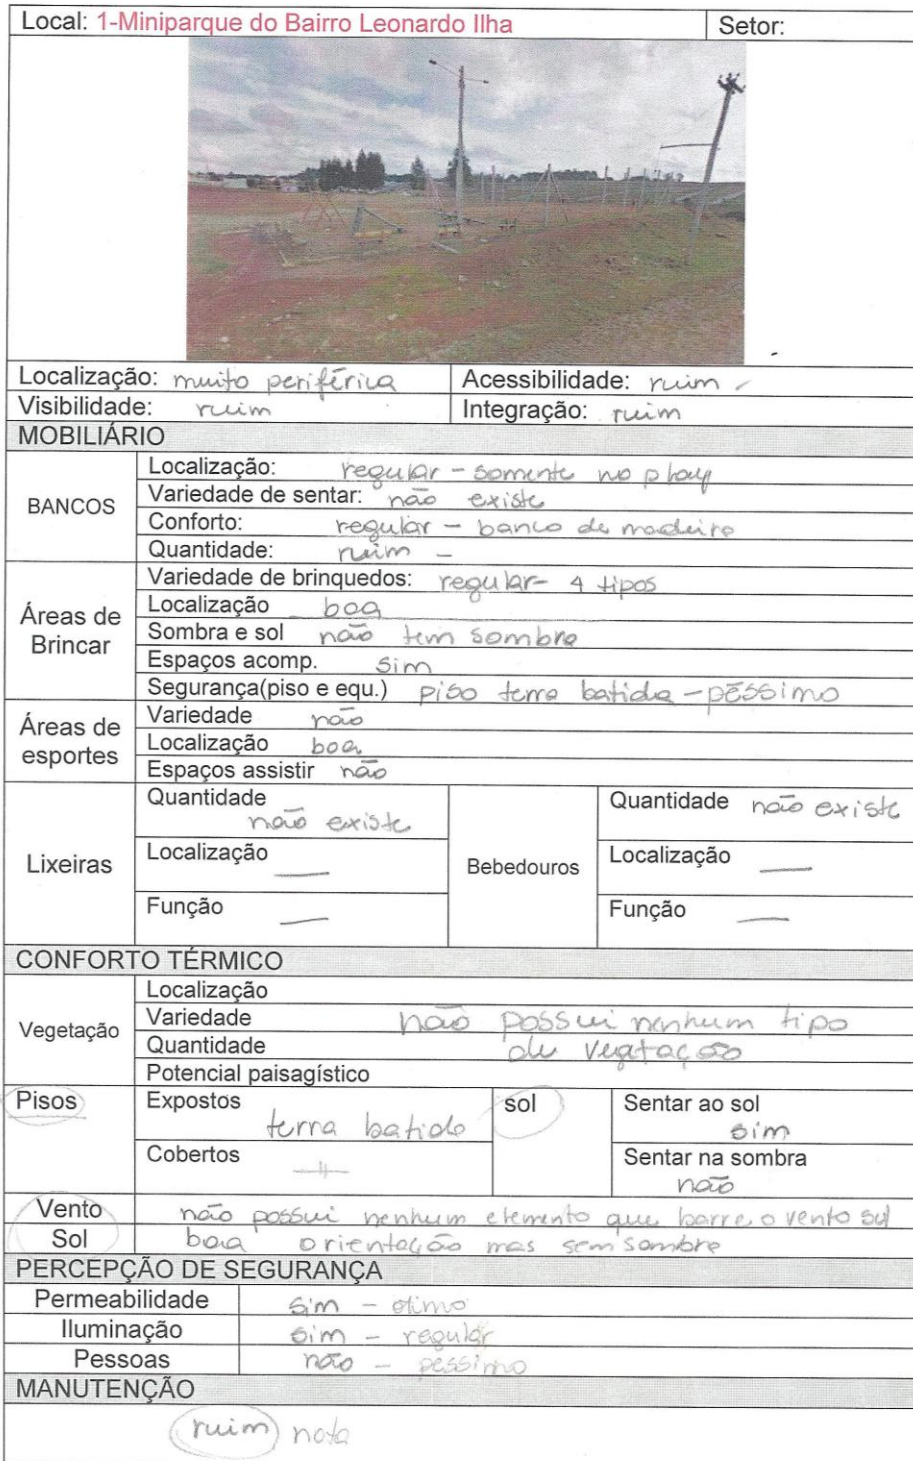 Local: 1-Miniparque do Bairro Leonardo Ilha Setor:
Localização: muito periférica Acessibilidade: ruim
Visibilidade: ruim Integração: ruim
MOBILIÁRIO
BANCOS
Localização: regular - somente no play
Variedade de sentar: não existe
Conforto: regular - banco de madeira
Quantidade: ruim -
Áreas de Brincar
Variedade de brinquedos: regular - 4 tipos
Localização boa
Sombra e sol não tem sombra
Espaços acomp. sim
Segurança(piso e equ.) piso terra batida - péssimo
Áreas de esportes
Variedade não
Localização boa
Espaços assistir não
Lixeiras
Quantidade não existe
Localização —
Função —
Bebedouros
Quantidade não existe
Localização —
Função —
CONFORTO TÉRMICO
Vegetação
Localização
Variedade não possui nenhum tipo
Quantidade de vegetação
Potencial paisagístico
Pisos
Expostos terra batida
Cobertos
sol
Sentar ao sol sim
Sentar na sombra não
Vento não possui nenhum elemento que barre o vento sul
Sol boa orientação mas sem sombra
PERCEPÇÃO DE SEGURANÇA
Permeabilidade sim - ótimo
Iluminação sim - regular
Pessoas não - péssimo
MANUTENÇÃO
ruim nota